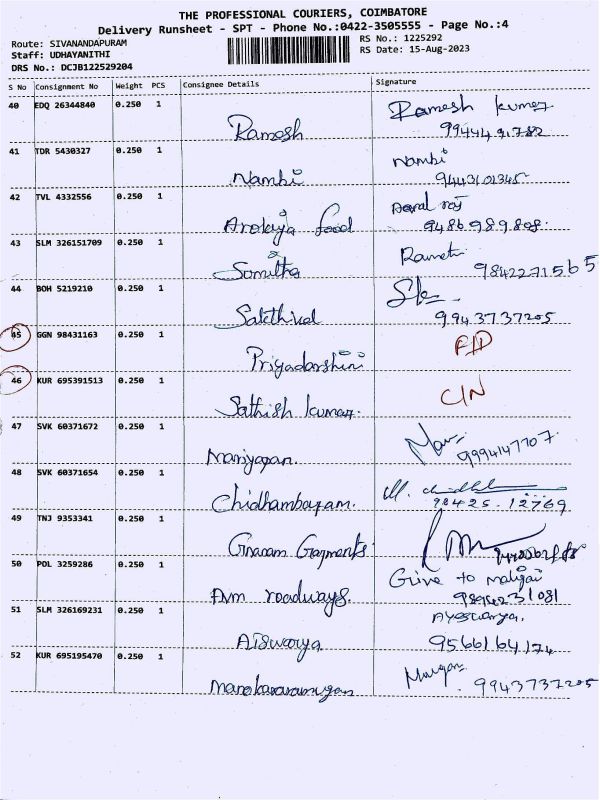 THE PROFESSIONAL COURIERS, COIMBATORE
Delivery Runsheet - SPT - Phone No.:0422-3505555 - Page No.:4
Route: SIVANANDAPURAM
RS No.: 1225292
Staff: UDHAYANITHI
RS Date: 15-Aug-2023
DRS No.: DCJB122529204
S No Consignment No Weight PCS Consignee Details Signature
40 EDQ 26344840 0.250 1
Ramesh Ramesh kumar
9944491782
41 TDR 5430327 0.250 1
Nambi Nambi
9443101345
42 TVL 4332556 0.250 1
Arokiya food
9486989808
43 SLM 326151709 0.250 1
Somitha
9842271565
44 BOH 5219210 0.250 1
Sakthivel
9943737205
45 GGN 98431163 0.250 1
Priyadarshini
46 KUR 695391513 0.250 1
Sathish kumar. C/N
47 SVK 60371672 0.250 1
Mariyapan.
9994147707.
48 SVK 60371654 0.250 1
Chidhambaram.
98425.12769
49 TNJ 9353341 0.250 1
Garments
50 POL 3259286 0.250 1
Give to maligai
roadways.
51 SLM 326169231 0.250 1
Aiswarya Ayeswarya.
9566164174
52 KUR 695195470 0.250 1
Murgan
9943737205